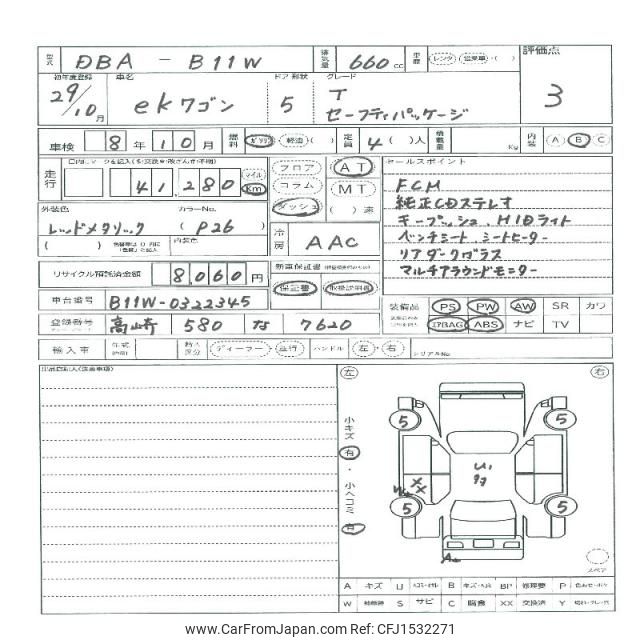 型式 DBA - B11W 排気量 660 cc 車歴 レンタ 営業車 ( ) 評価点
初年度登録 車名 ドア 形状 グレード
29/10月 ekワゴン 5 T セーフティパッケージ 3
車検 8年10月 燃料 ガソリン 軽油 ( ) 定員 4( )人 積載量 Kg 内装 A B C
走行 41,280 マイル Km フロア コラム ダッシュ AT MT ( )速 セールスポイント
FCM
外装色 カラーNo. 純正CDステレオ
レッドメタリック (P26) キープッシュ、HIDライト
( ) 内装色 冷房 AAC ベンチシート、シートヒーター
リアダークガラス
リサイクル預託済金額 8,060円 新車保証書 マルチアラウンドモニター
保証書 取扱説明書
車台番号 B11W-0322345 装備品 PS PW AW SR カワ
登録番号 高崎 580 な 7620 エアBAG ABS ナビ TV
輸入車 年式 輸入区分 ディーラー・並行 ハンドル 左・右 シリアルNo.
左 右
小キズ 有・小ヘコミ 有
5 5
U1
XX
W 5 5
A
スペア
A キズ U B BP 修理要 P
W S サビ C 腐食 XX 交換済 Y
www.CarFromJapan.com - CFJ1532271